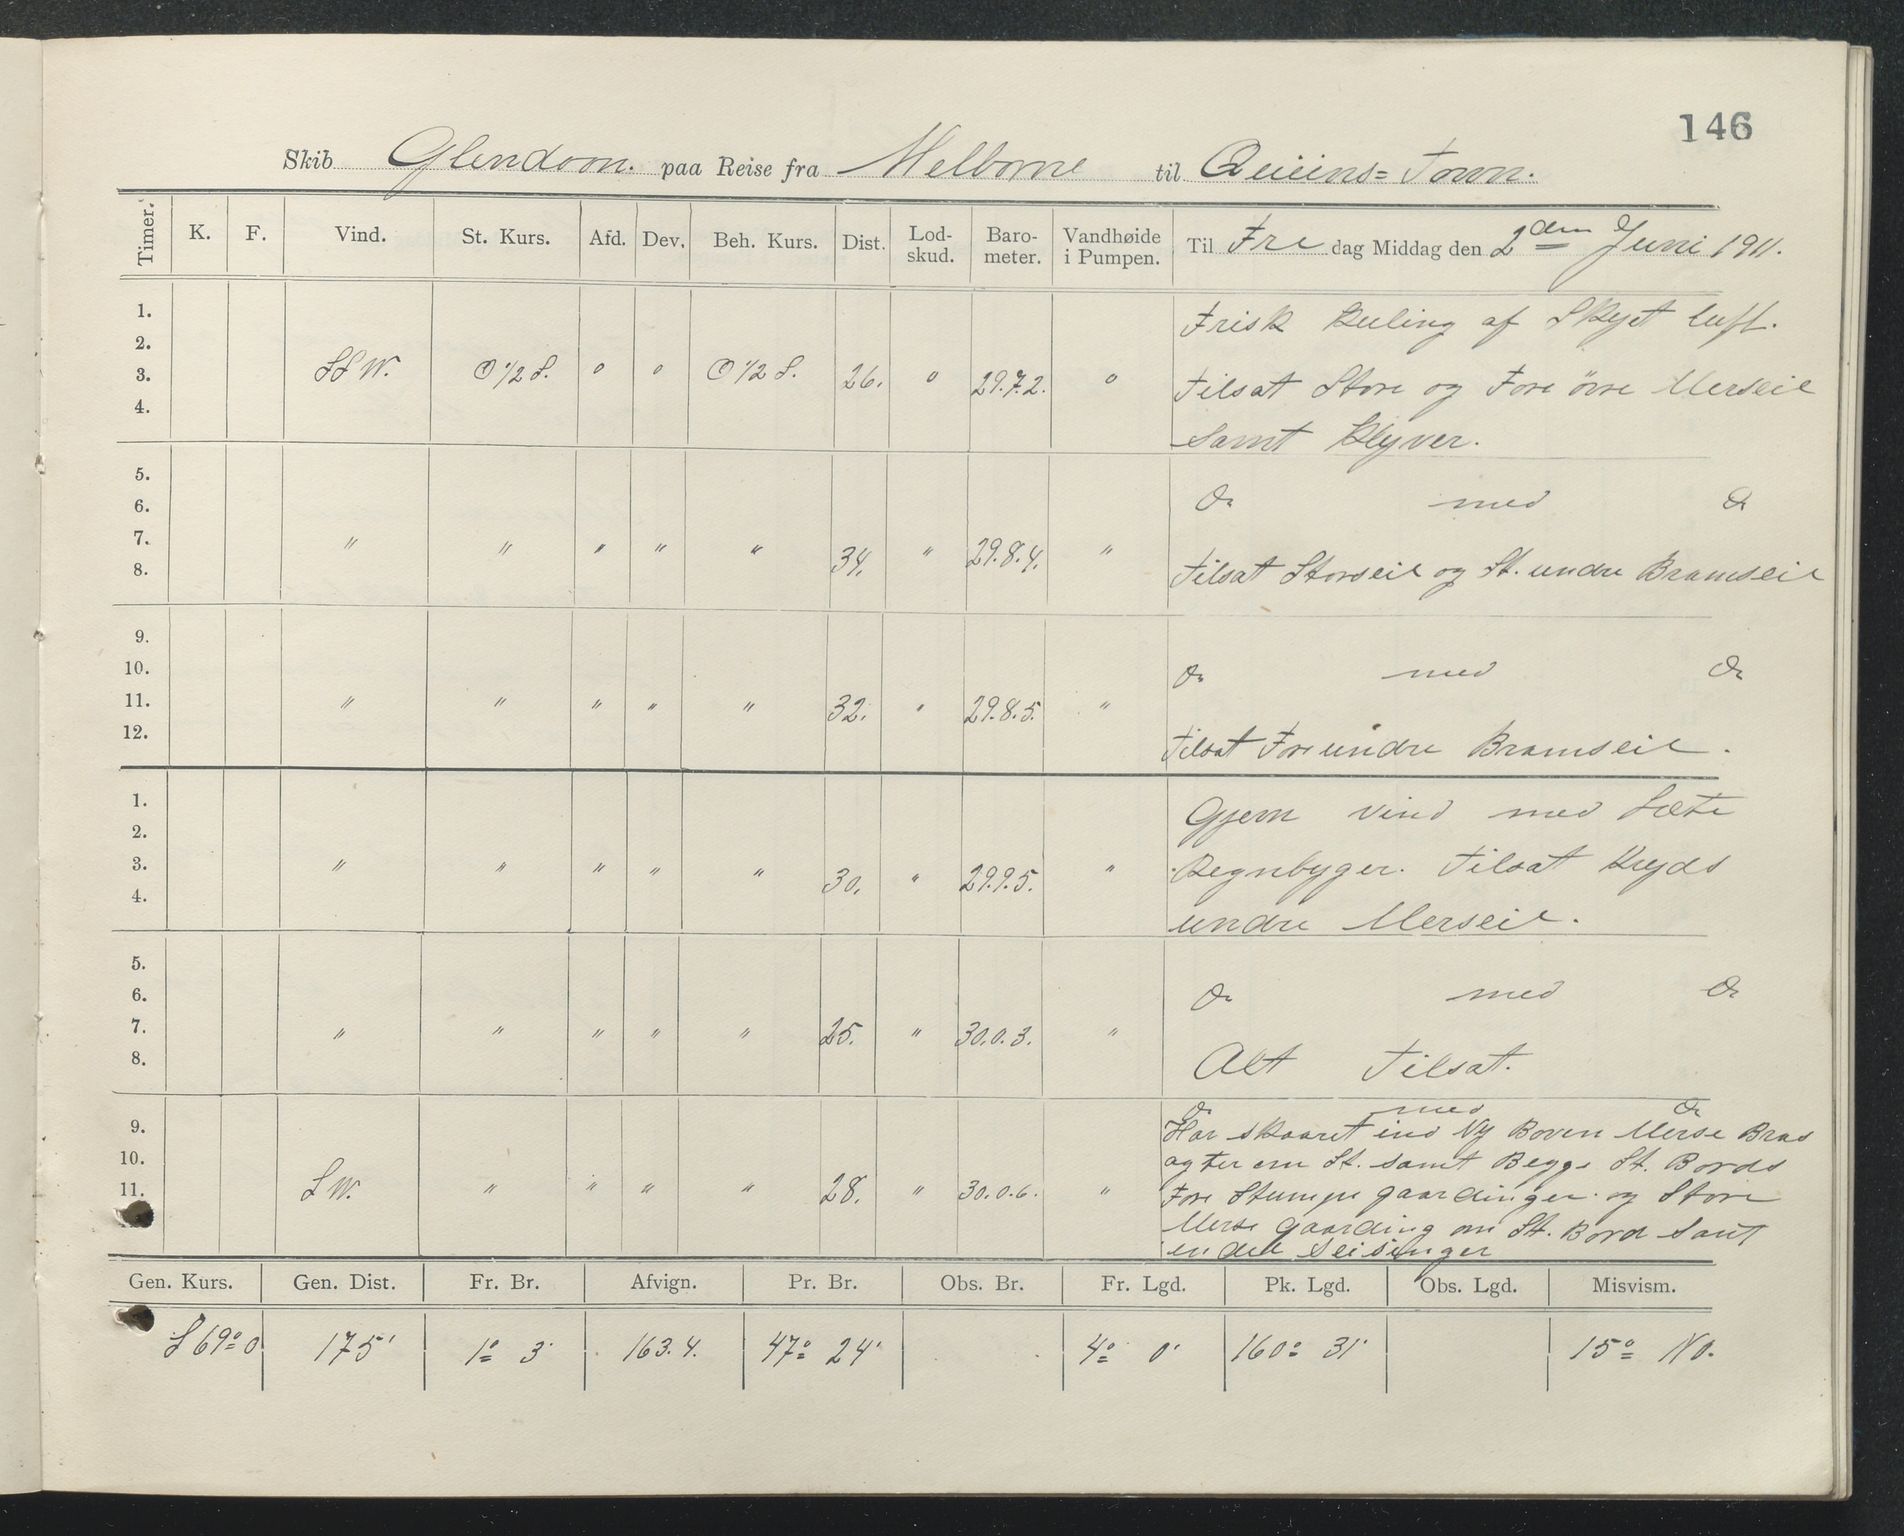 146
Skib Glendoon. paa Reise fra Melborne til Qeieins=Town.
Timer. K. F. Vind. St. Kurs. Afd. Dev. Beh. Kurs. Dist. Lod-skud. Baro-meter. Vandhøide i Pumpen. Til Fre dag Middag den 2den Juni 1911.
1. Frisk Kuling af Skyet luft.
2.
3. SSW. O 1/2 S. 0 0 O 1/2 S. 26. 0 29.7.2. 0 Tilsat Store og Fore övre Merseil
4. Samt Klyver.
5.
6. Do med Do
7. " " " " " 34. " 29.8.4. "
8. Tilsat Storseil og St. undre Bramseil
9.
10. Do med Do
11. " " " " " 32. " 29.8.5. "
12. Tilsat Fore undre Bramseil.
1. Gjem vind med Læte
2.
3. " " " " " 30. " 29.9.5. " Regnbyger. Tilsat Kryds
4. undre Merseil.
5.
6. Do med Do
7. " " " " " 25. " 30.0.3. "
8. Alt Tilsat.
Do med Do
9. Har skaaret ind Ny Boven Merse Bras
10. agter om St. samt Begge St. Bords
11. SW. " " " " 28. " 30.0.6. " Fore Stumpe gaardinger og Store
Merse gaarding om St. Bord samt
en del Seisinger
Gen. Kurs. Gen. Dist. Fr. Br. Afvign. Pr. Br. Obs. Br. Fr. Lgd. Pk. Lgd. Obs. Lgd. Misvism.
S 69° O 175' 1° 3' 163.4. 47° 24' 4° 0' 160° 31' 15° NO.